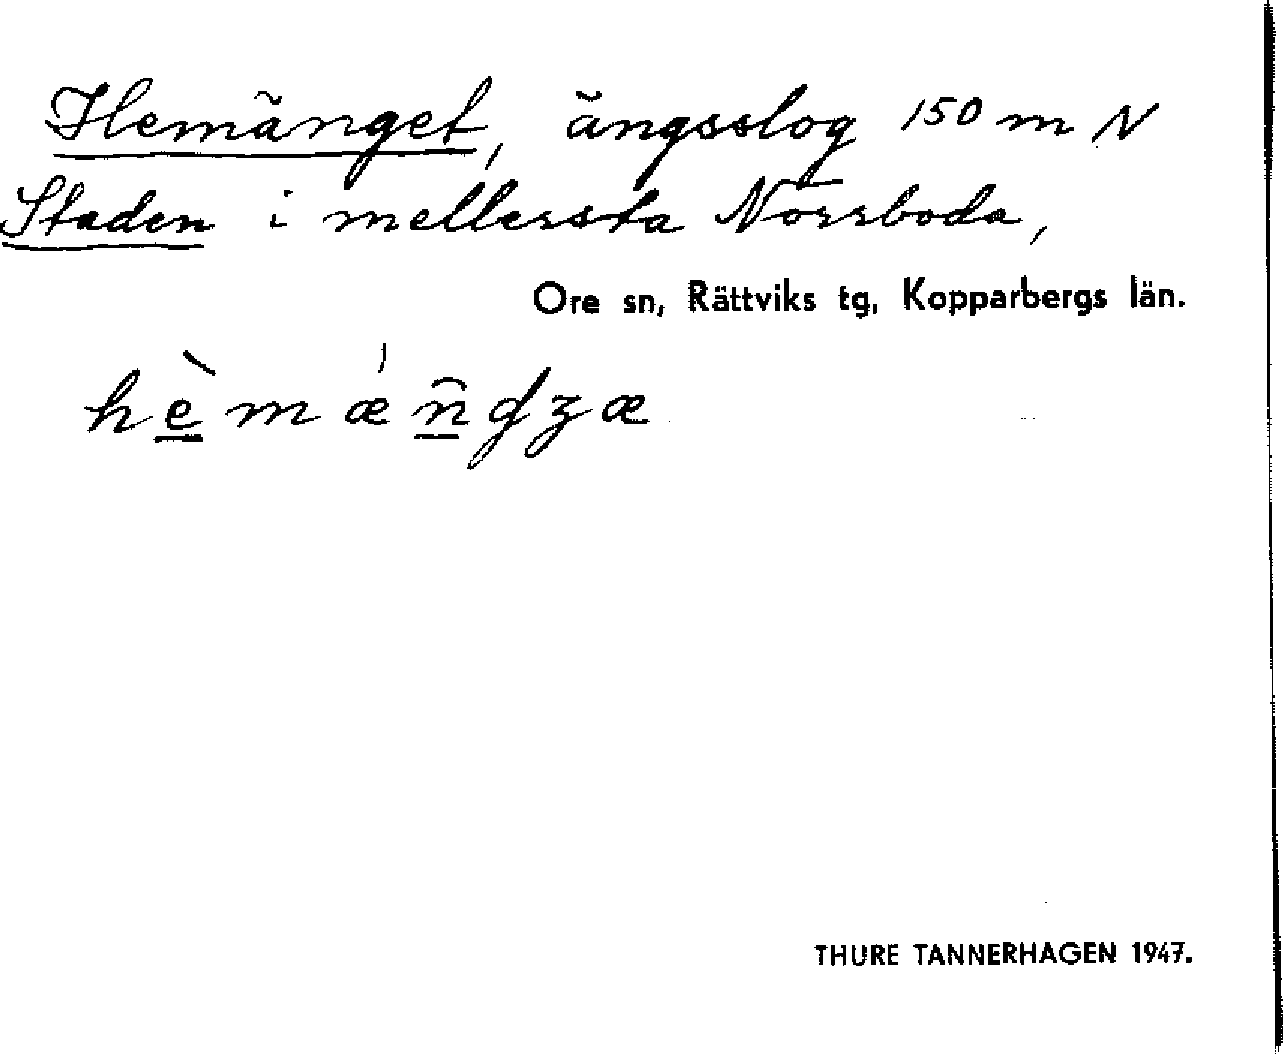 Hemänget, ängsslog 150 m N
Staden i mellersta Norrboda,
Ore sn, Rättviks tg, Kopparbergs län.
THURE TANNERHAGEN 1947.